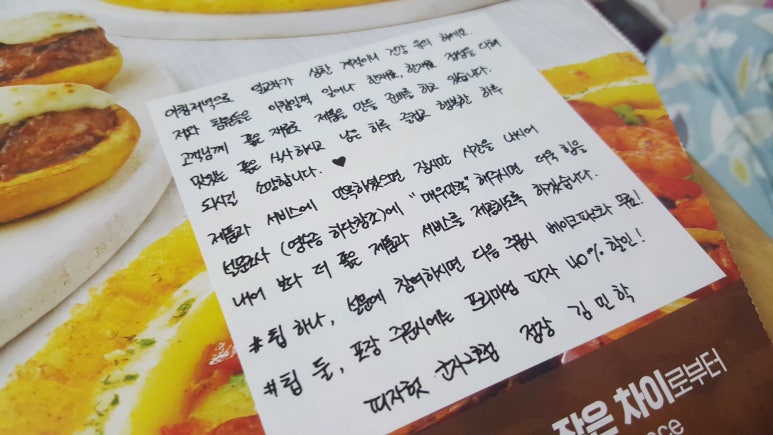 아침저녁으로 일교차가 심한 계절이니 건강 유의 하세요.
저희 팀원들은 아침일찍 일어나 한재료, 한재료 정성을 다해
고객님께 좋은 재료로 제품을 만들 준비를 하고 있습니다.
맛있는 좋은 식사하시고 남은 하루 즐겁고 행복한 하루
되시길 소망합니다. ♥
제품과 서비스에 만족하였으면 잠시만 시간을 내시어
설문조사 (영수증 하단참조)에 "매우만족" 해주시면 더욱 힘을
내어 보다 더 좋은 제품과 서비스를 제공하도록 하겠습니다.
#팁 하나, 설문에 참여하시면 다음 주문시 베이크파스타 무료!
#팁 둘, 포장 주문시에는 프리미엄 피자 40% 할인!
피자헛 점장 김민학
작은 차이로부터